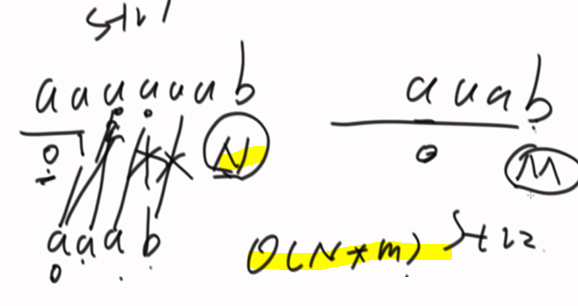 str1
aaaaaab
aaab
0
N
0
M
aaab
0
O(N*m)
str2